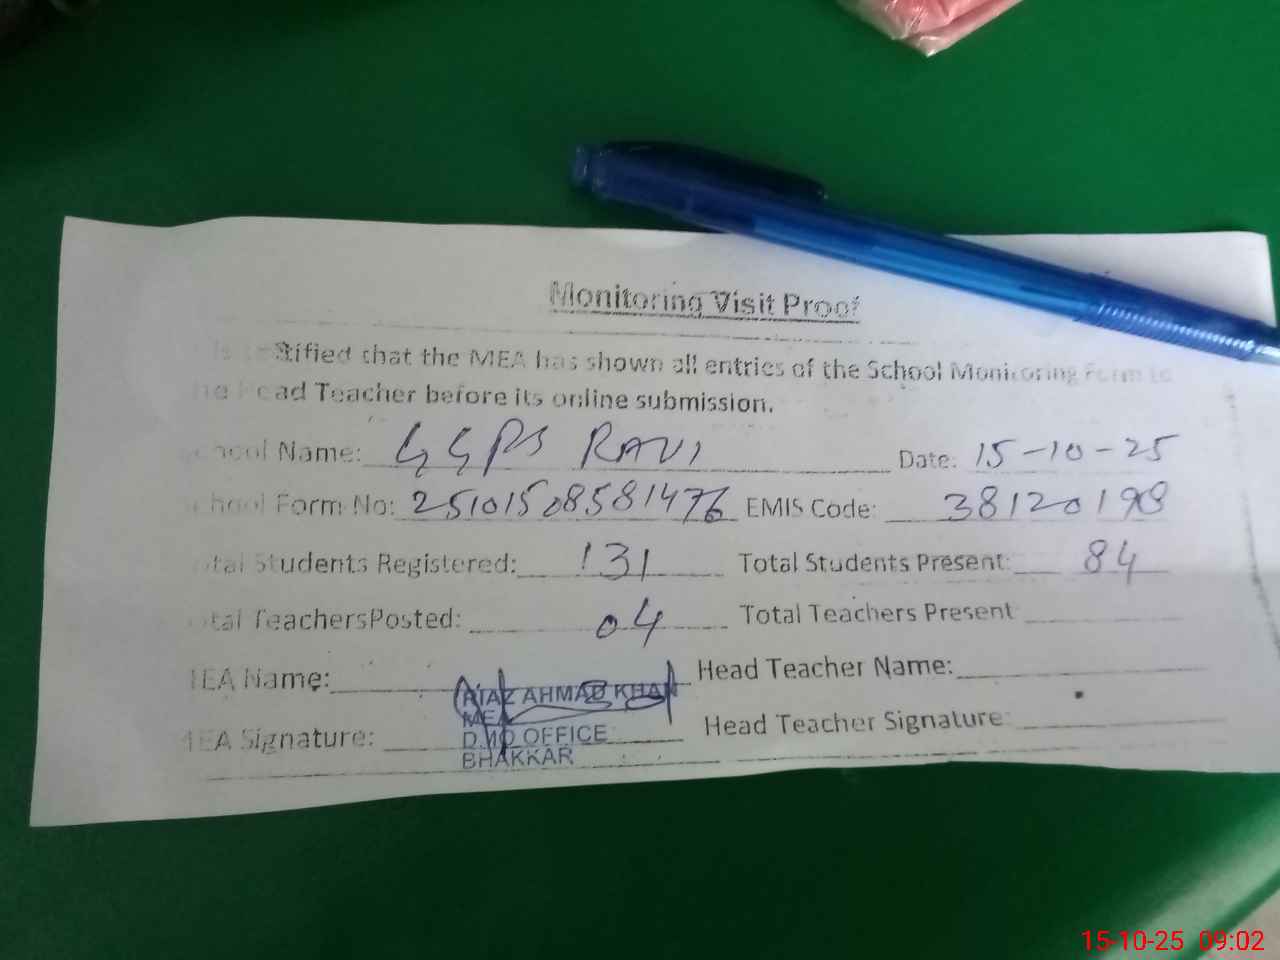 Monitoring Visit Proof
is certified that the MEA has shown all entries of the School Monitoring Form to
the Head Teacher before its online submission.
School Name: GGPS RAVI Date: 15-10-25
School Form No: 25101508581476 EMIS Code: 38120198
Total Students Registered: 131 Total Students Present: 84
Total TeachersPosted: 04 Total Teachers Present
MEA Name: Head Teacher Name:
RIAZ AHMAD KHAN
MEA
MEA Signature: Head Teacher Signature:
D.M.O OFFICE
BHAKKAR
15-10-25 09:02